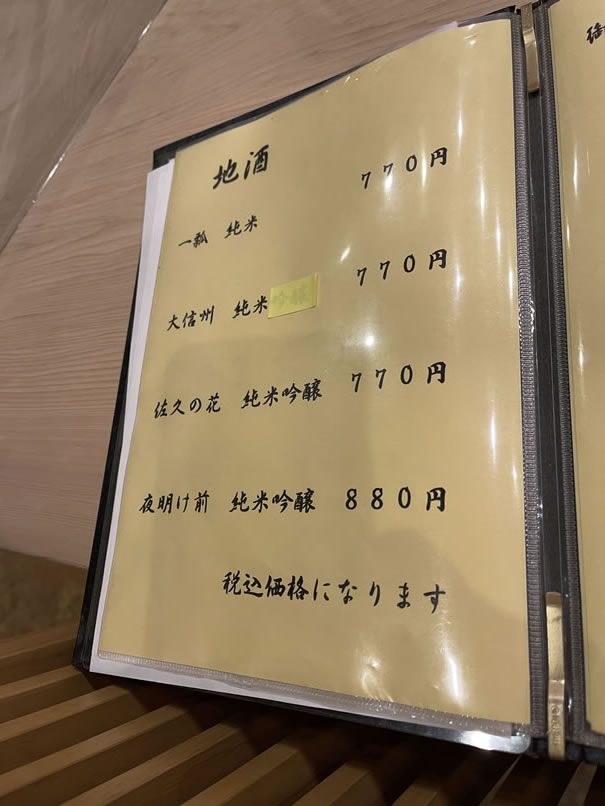 地酒
一瓢 純米 770円
大信州 純米吟醸 770円
佐久の花 純米吟醸 770円
夜明け前 純米吟醸 880円
税込価格になります